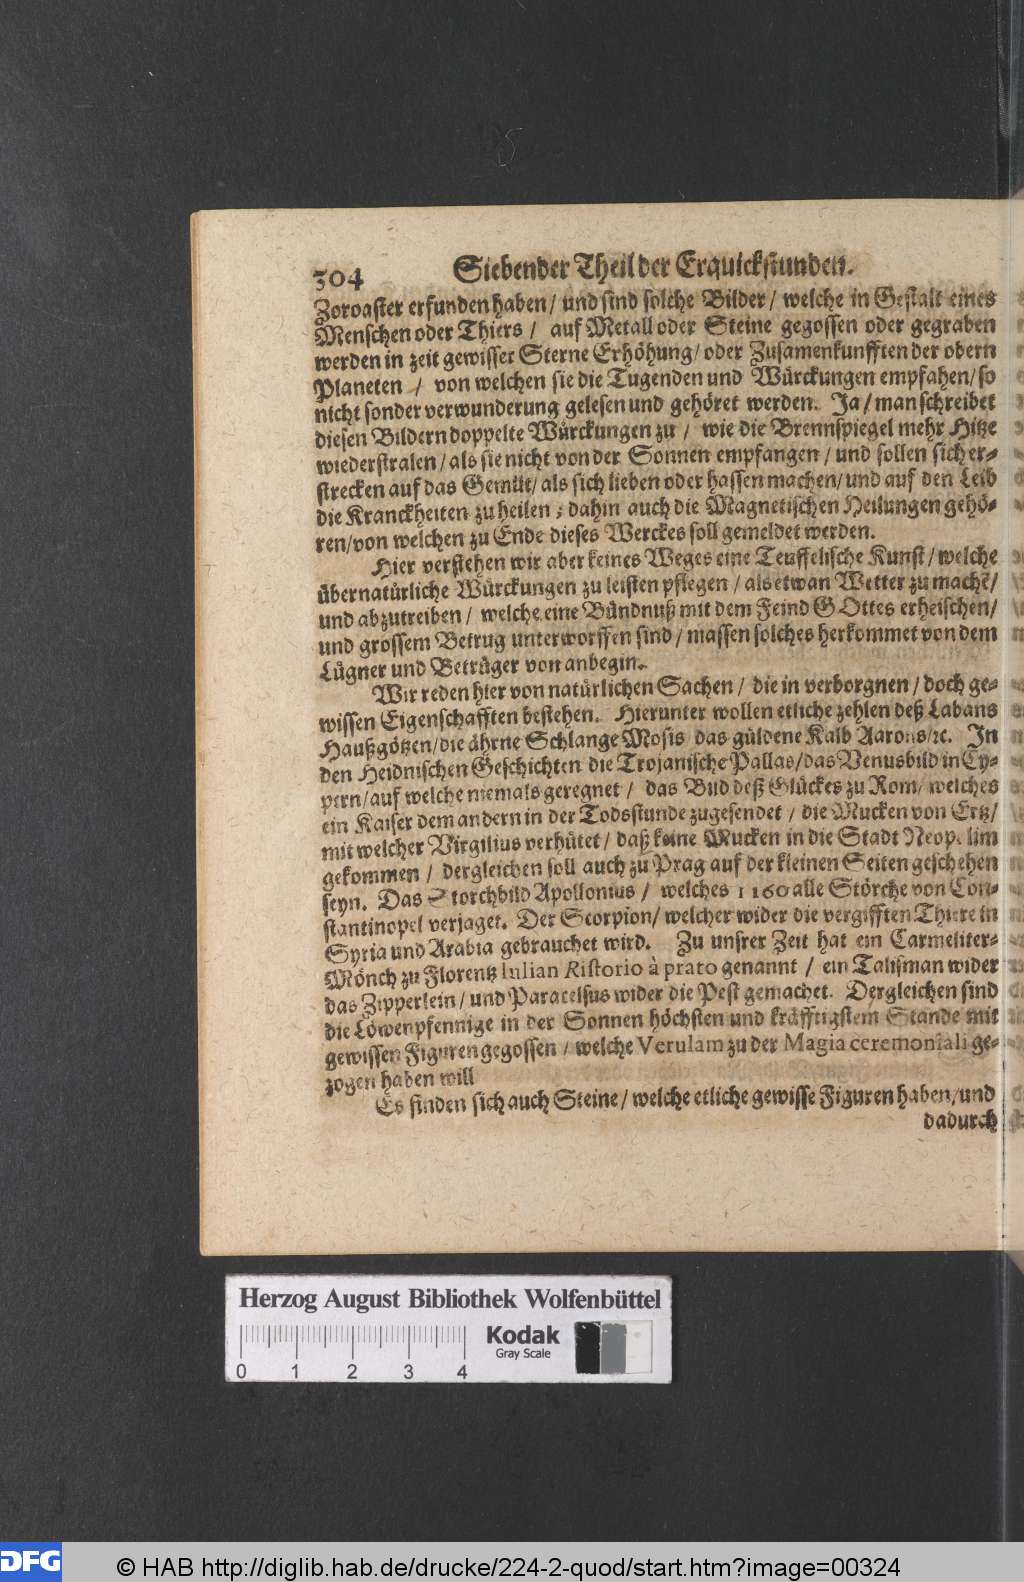 304 Siebender Theil der Erquickstunden.
Zoroaster erfunden haben / und sind solche Bilder / welche in Gestalt eines
Menschen oder Thiers / auf Metall oder Steine gegossen oder gegraben
werden in zeit gewisser Sterne Erhöhung / oder Zusamenkunfften der obern
Planeten / von welchen sie die Tugenden und Würckungen empfahen / so
nicht sonder verwunderung gelesen und gehöret werden. Ja / man schreibet
diesen Bildern doppelte Würckungen zu / wie die Brennspiegel mehr Hitze
wiederstralen / als sie nicht von der Sonnen empfangen / und sollen sich er-
strecken auf das Gemüt / als sich lieben oder hassen machen / und auf den Leib
die Kranckheiten zu heilen ; dahin auch die Magnetischen Heilungen gehö-
ren / von welchen zu Ende dieses Werckes soll gemeldet werden.
Hier verstehen wir aber keines Weges eine Teuffelische Kunst / welche
übernatürliche Würckungen zu leisten pflegen / als etwan Wetter zu machē /
und abzutreiben / welche eine Bündnuß mit dem Feind GOttes erheischen /
und grossem Betrug unterworffen sind / massen solches herkommet von dem
Lügner und Betrüger von anbegin.
Wir reden hier von natürlichen Sachen / die in verborgnen / doch ge-
wissen Eigenschafften bestehen. Hierunter wollen etliche zehlen deß Labans
Haußgötzen / die ährne Schlange Mosis das güldene Kalb Aarons / ꝛc. In
den Heidnischen Geschichten die Trojanische Pallas / das Venusbild in Cy-
pern / auf welche niemals geregnet / das Bild deß Glückes zu Rom / welches
ein Kaiser dem andern in der Todsstunde zugesendet / die Mucken von Ertz /
mit welcher Virgilius verhütet / daß keine Mucken in die Stadt
gekommen / dergleichen soll auch zu Prag auf der kleinen Seiten geschehen
seyn. Das Storchbild Apollonius / welches 1160 alle Störche von Con-
stantinopel verjaget. Der Scorpion / welcher wider die vergifften Thiere in
Syria und Arabia gebrauchet wird. Zu unsrer Zeit hat ein Carmeliter-
Mönch zu Florentz Iulian Ristorio à prato genannt / ein Talisman wider
das Zipperlein / und Paracelsus wider die Pest gemachet. Dergleichen sind
die Löwenpfennige in der Sonnen höchsten und kräfftigstem Stande mit
gewissen Figuren gegossen / welche Verulam zu der Magia ceremoniali ge-
zogen haben will
Es finden sich auch Steine / welche etliche gewisse Figuren haben / und
dadurch
Herzog August Bibliothek Wolfenbüttel
Kodak
Gray Scale
0 1 2 3 4
DFG © HAB http://diglib.hab.de/drucke/224-2-quod/start.htm?image=00324